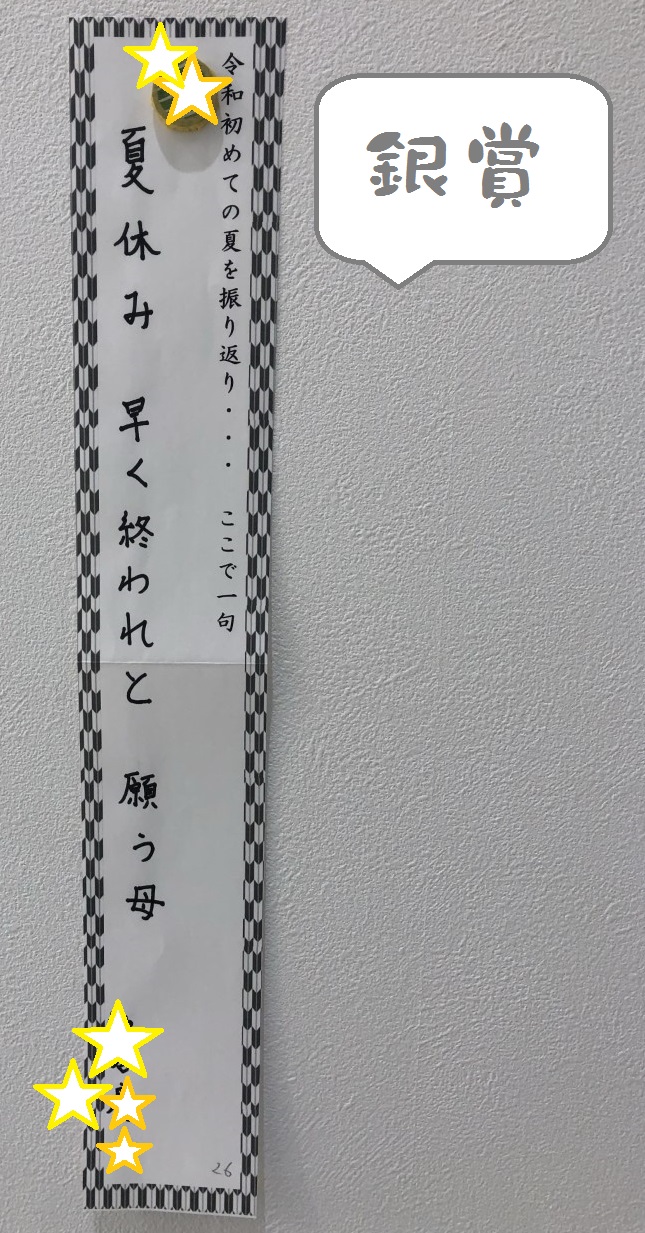 令和初めての夏を振り返り・・・　ここで一句
夏休み　早く終われと　願う母
26
銀賞